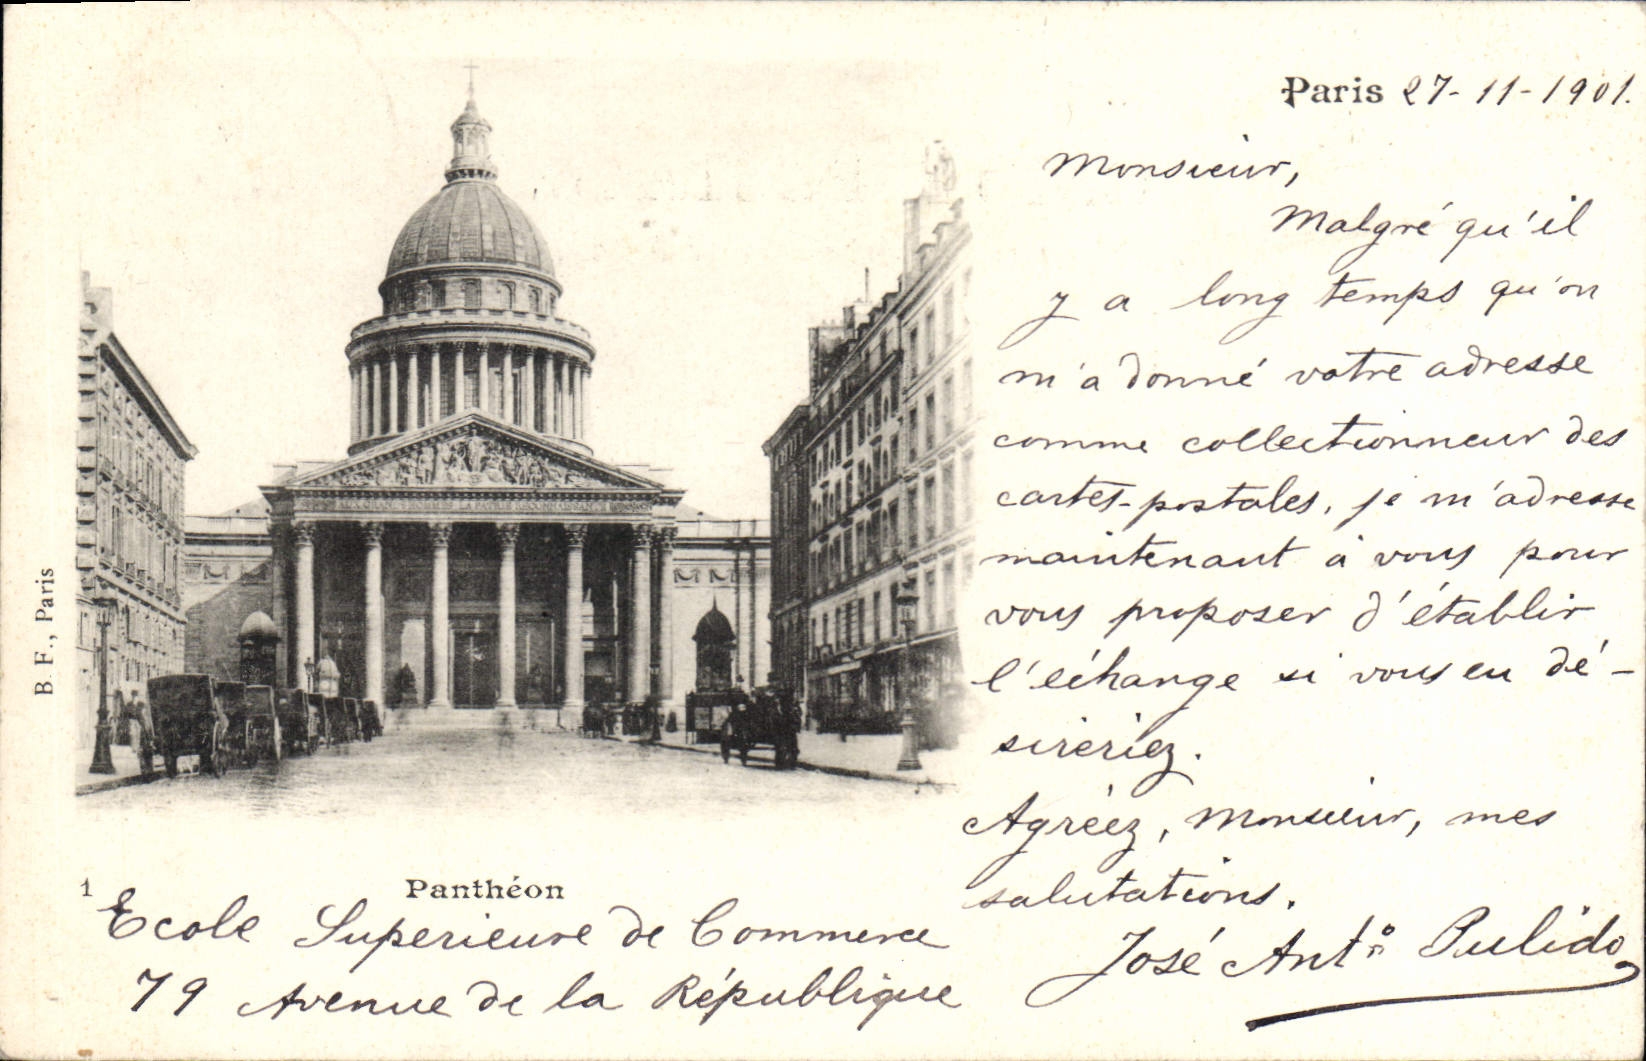 Paris 27-11-1901.
Monsieur,
Malgré qu'il
y a long temps qu'on
m'a donné votre adresse
comme collectionneur des
cartes-postales, je m'adresse
maintenant à vous pour
vous proposer d'établir
l'échange si vous en dé-
sireriez.
Agréez, Monsieur, mes
salutations.
José Antº Pulido
B. F., Paris
1 Panthéon
Ecole Superieure de Commerce
79 Avenue de la République